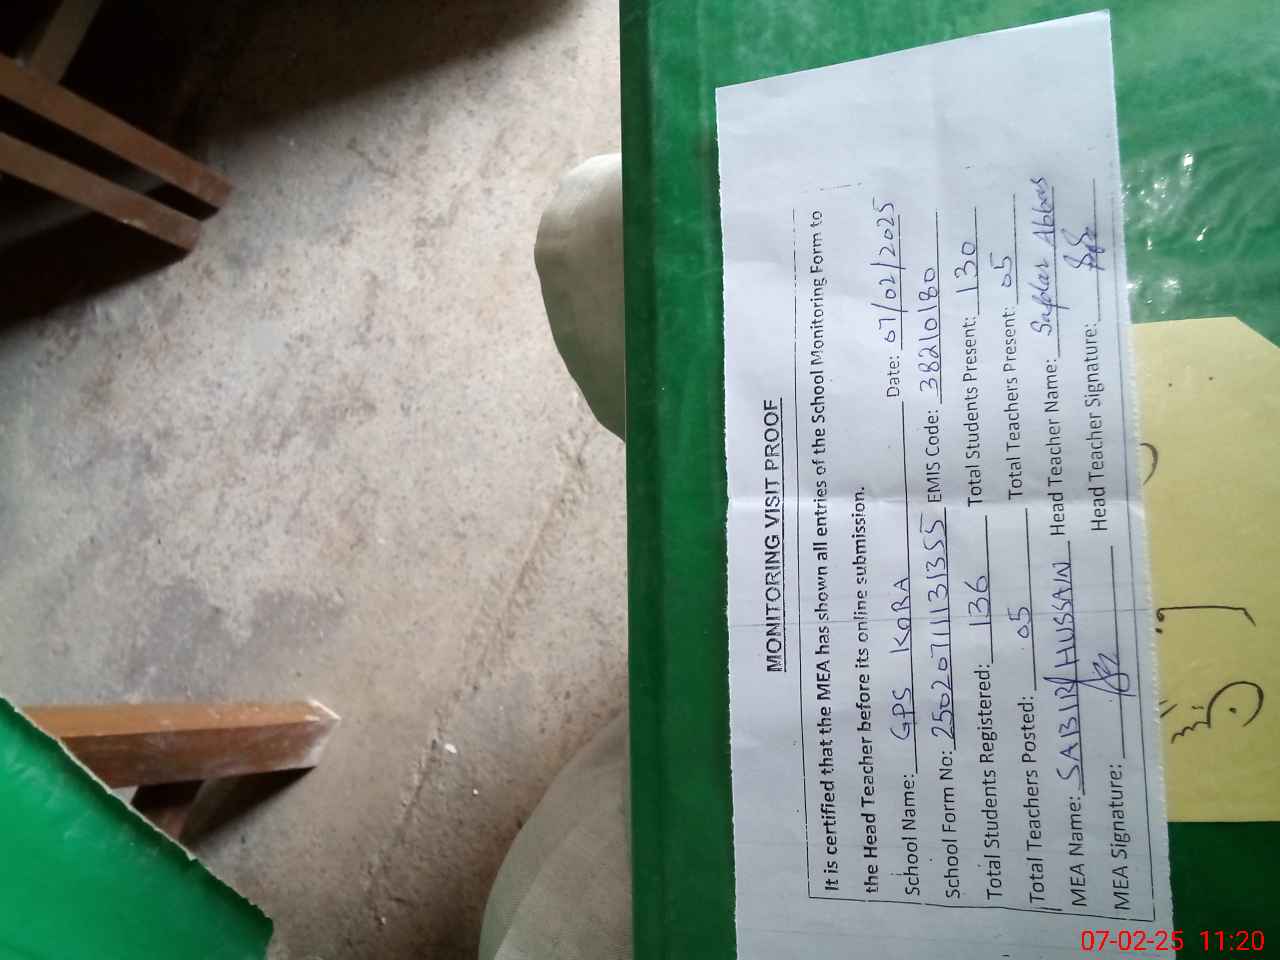 MONITORING VISIT PROOF
It is certified that the MEA has shown all entries of the School Monitoring Form to
the Head Teacher before its online submission.
School Name: GPS KORA Date: 07/02/2025
School Form No: 25020711131355 EMIS Code: 38210180
Total Students Registered: 136 Total Students Present: 130
Total Teachers Posted: 05 Total Teachers Present: 05
MEA Name: SABIR HUSSAIN Head Teacher Name: Safdar Abbas
MEA Signature: Head Teacher Signature:
07-02-25 11:20